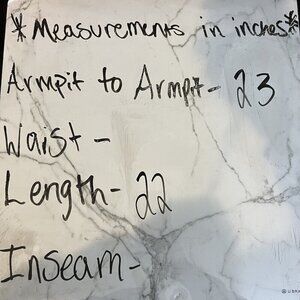 *Measurements in inches*
Armpit to Armpit- 23
Waist -
Length- 22
Inseam-